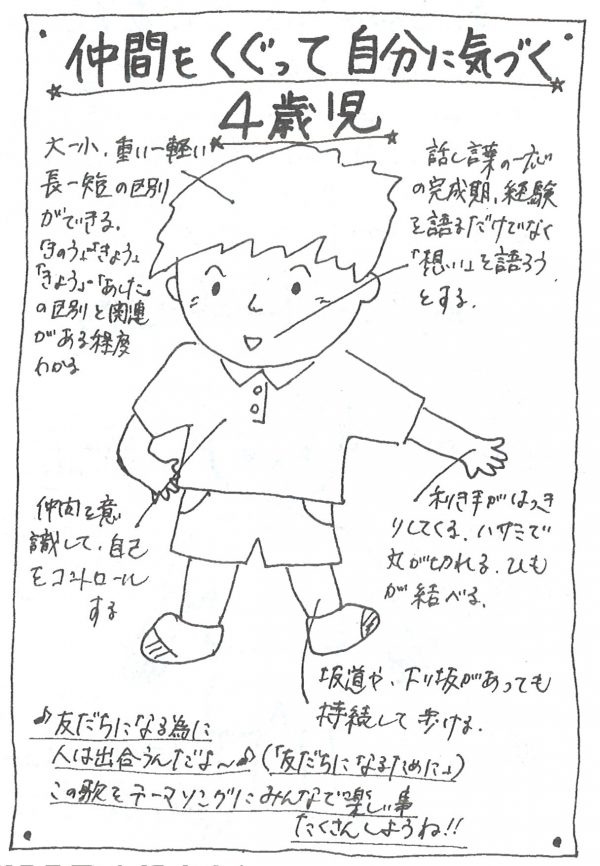 仲間をくぐって自分に気づく
4歳児
大－小、重い－軽い
長－短の区別
ができる。
「きのう」「きょう」
「きょう」「あした」
の区別と関連
がある程度
わかる
話し言葉の一応
の完成期、経験
を語るだけでなく
「想い」を語ろう
とする。
仲間を意
識して、自己
をコントロール
する
利き手がはっき
りしてくる。ハサミで
丸が切れる。ひも
が結べる。
坂道や、下り坂があっても
持続して歩ける。
♪友だちになる為に
人は出合うんだよ～♪(「友だちになるために」)
この歌をテーマソングにみんなで楽しい事
たくさんしようね!!